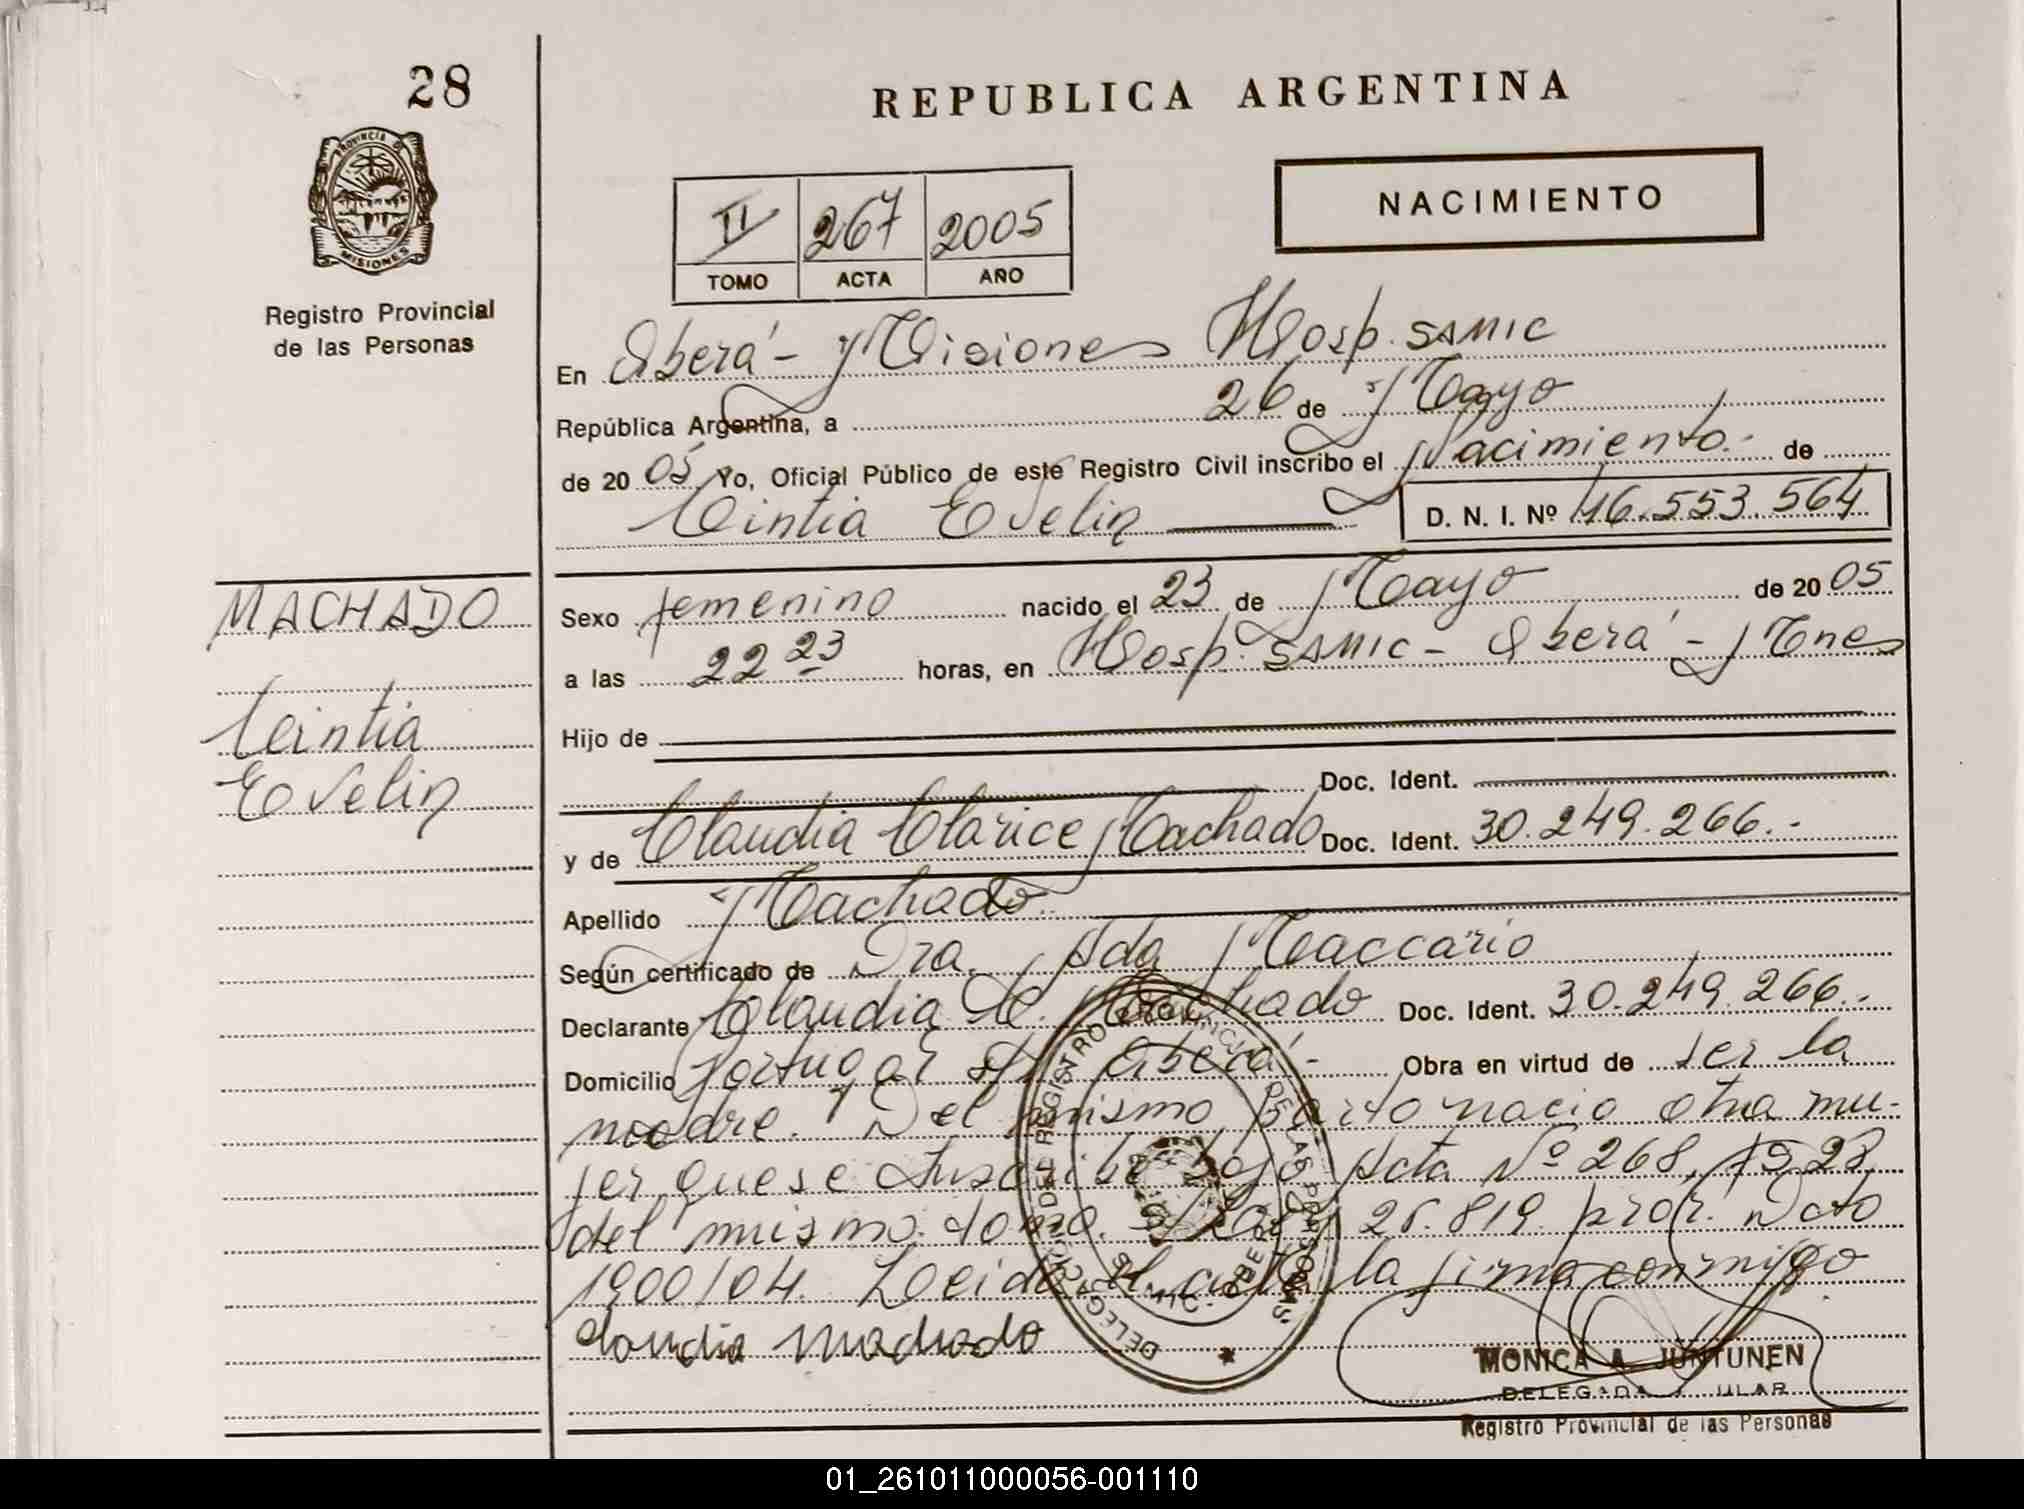 28
REPUBLICA ARGENTINA
PROVINCIA DE
MISIONES
Registro Provincial
de las Personas
II 267 2005
TOMO ACTA AÑO
NACIMIENTO
En Oberá - Misiones Hosp. SAMIC
República Argentina, a 26 de Mayo
de 20 05 Yo, Oficial Público de este Registro Civil inscribo el Nacimiento.- de
Cintia Evelin D. N. I. Nº 46.553.564
MACHADO
Cintia
Evelin
Sexo femenino nacido el 23 de Mayo de 20 05
a las 22 23 horas, en Hosp. SAMIC - Oberá - Mnes
Hijo de
Doc. Ident.
y de Claudia Clarice Machado Doc. Ident. 30.249.266.-
Apellido Machado
Según certificado de Dra. Ada Maccario
Declarante Claudia C. Machado Doc. Ident. 30.249.266.-
Domicilio Portugal Oberá.- Obra en virtud de ser la
madre. Del mismo parto nacio otra mu-
jer que se inscribe bajo Acta Nº 268, Fº 28
del mismo tomo. Ley 25.819 prór. Dcto
1900/04. Leida el acta la firma conmigo
Claudia Machado
MONICA A. JUNTUNEN
DELEGADA
Registro Provincial de las Personas
01_261011000056-001110